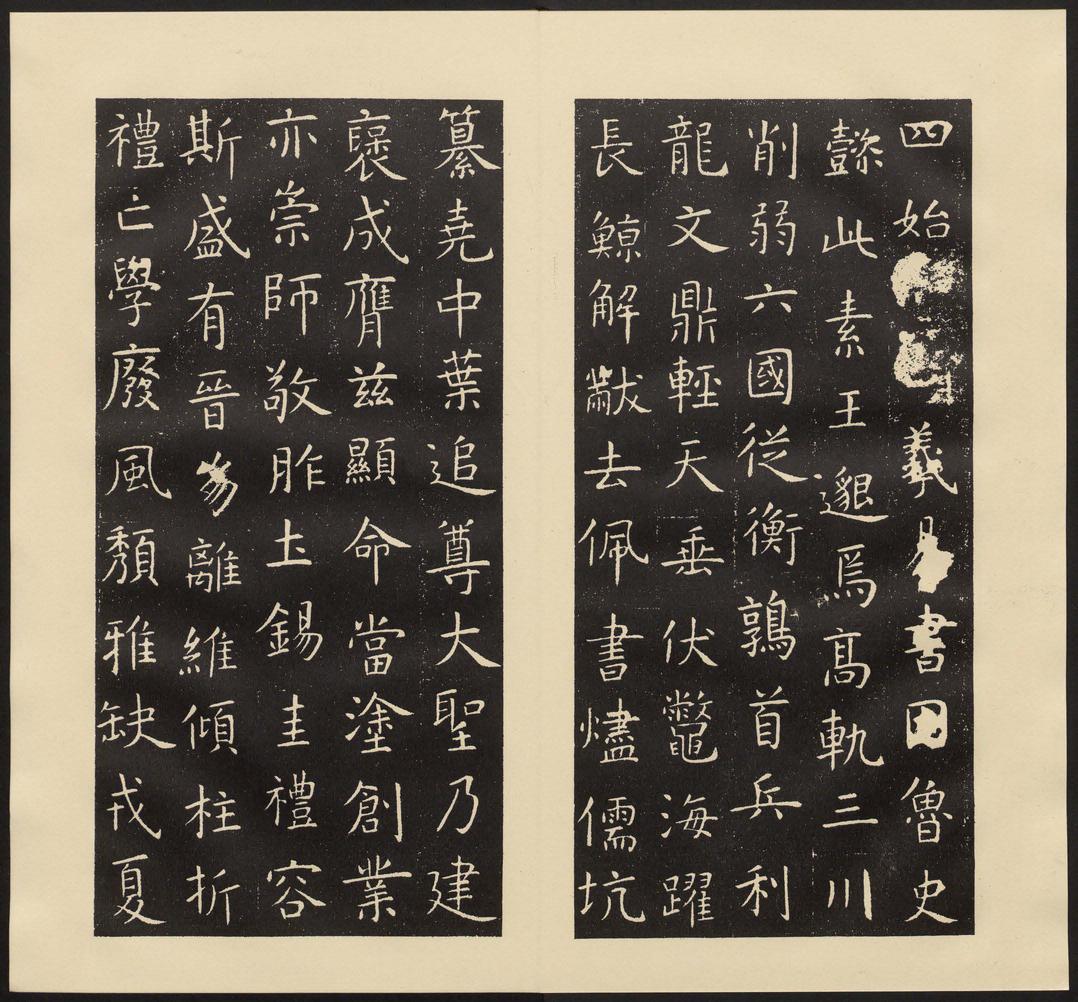 四始羲書因魯史
懿此素王邈焉高軌三川
削弱六國從衡鶉首兵利
龍文鼎輕天垂伏鼈海躍
長鯨解黻去佩書燼儒坑
纂堯中葉追尊大聖乃建
襃成膺兹顯命當塗創業
亦崇師敬胙土錫圭禮容
斯盛有晉離維傾柱折
禮亡學廢風頹雅缺戎夏